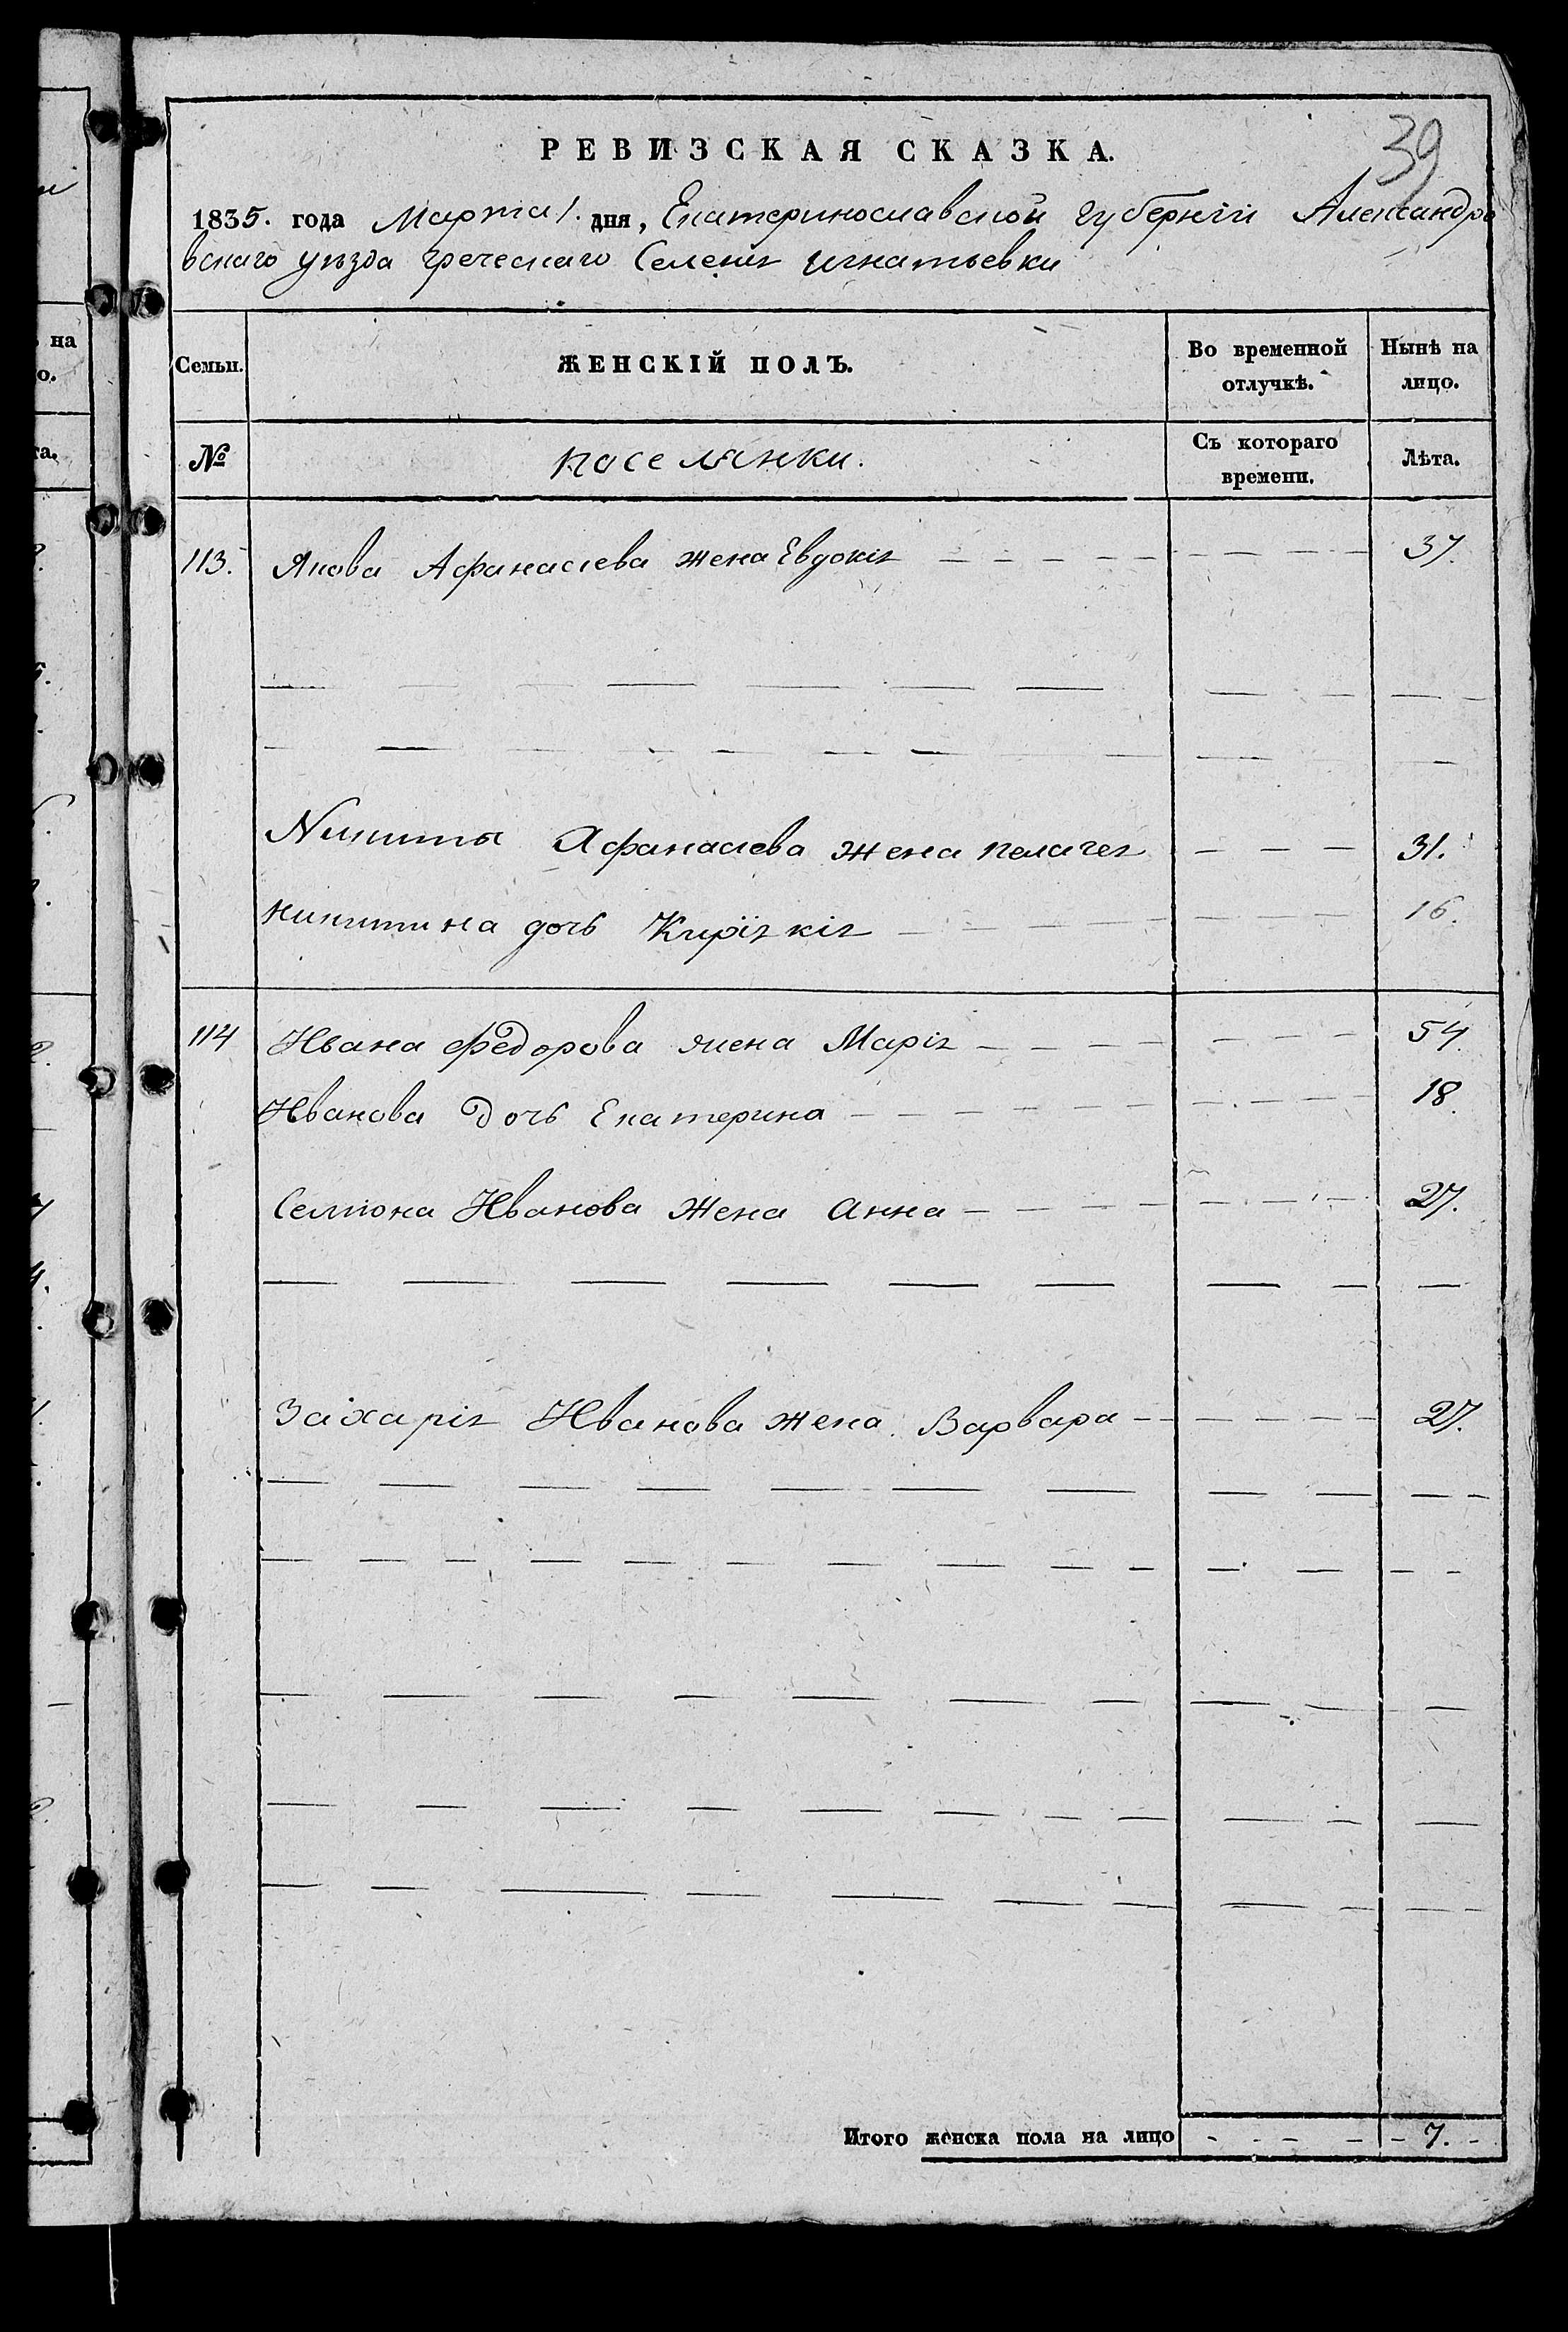 39
РЕВИЗСКАЯ СКАЗКА.
1835. года Марта 1. дня, Екатеринославской губерніи Александро
вскаго уѣзда греческаго Селенія игнатьевки
Семьи. ЖЕНСКІЙ ПОЛЪ. Во временной отлучкѣ. Нынѣ на лицо.
№ поселянки. Съ котораго времени. Лѣта.
113. Якова Афанасіева жена Евдокія — — — 37.
Никиты Афанасіева жена пелагея — — — 31.
никитина дочь Киріякія — — — 16.
114 Ивана Федорова жена Марія — — — 54.
Иванова дочь Екатерина — — — 18.
Семіона Иванова жена анна — — — 27.
Захарія Иванова жена Варвара — — — 27.
Итого женска пола на лицо - - - 7. -
на
о.
та.